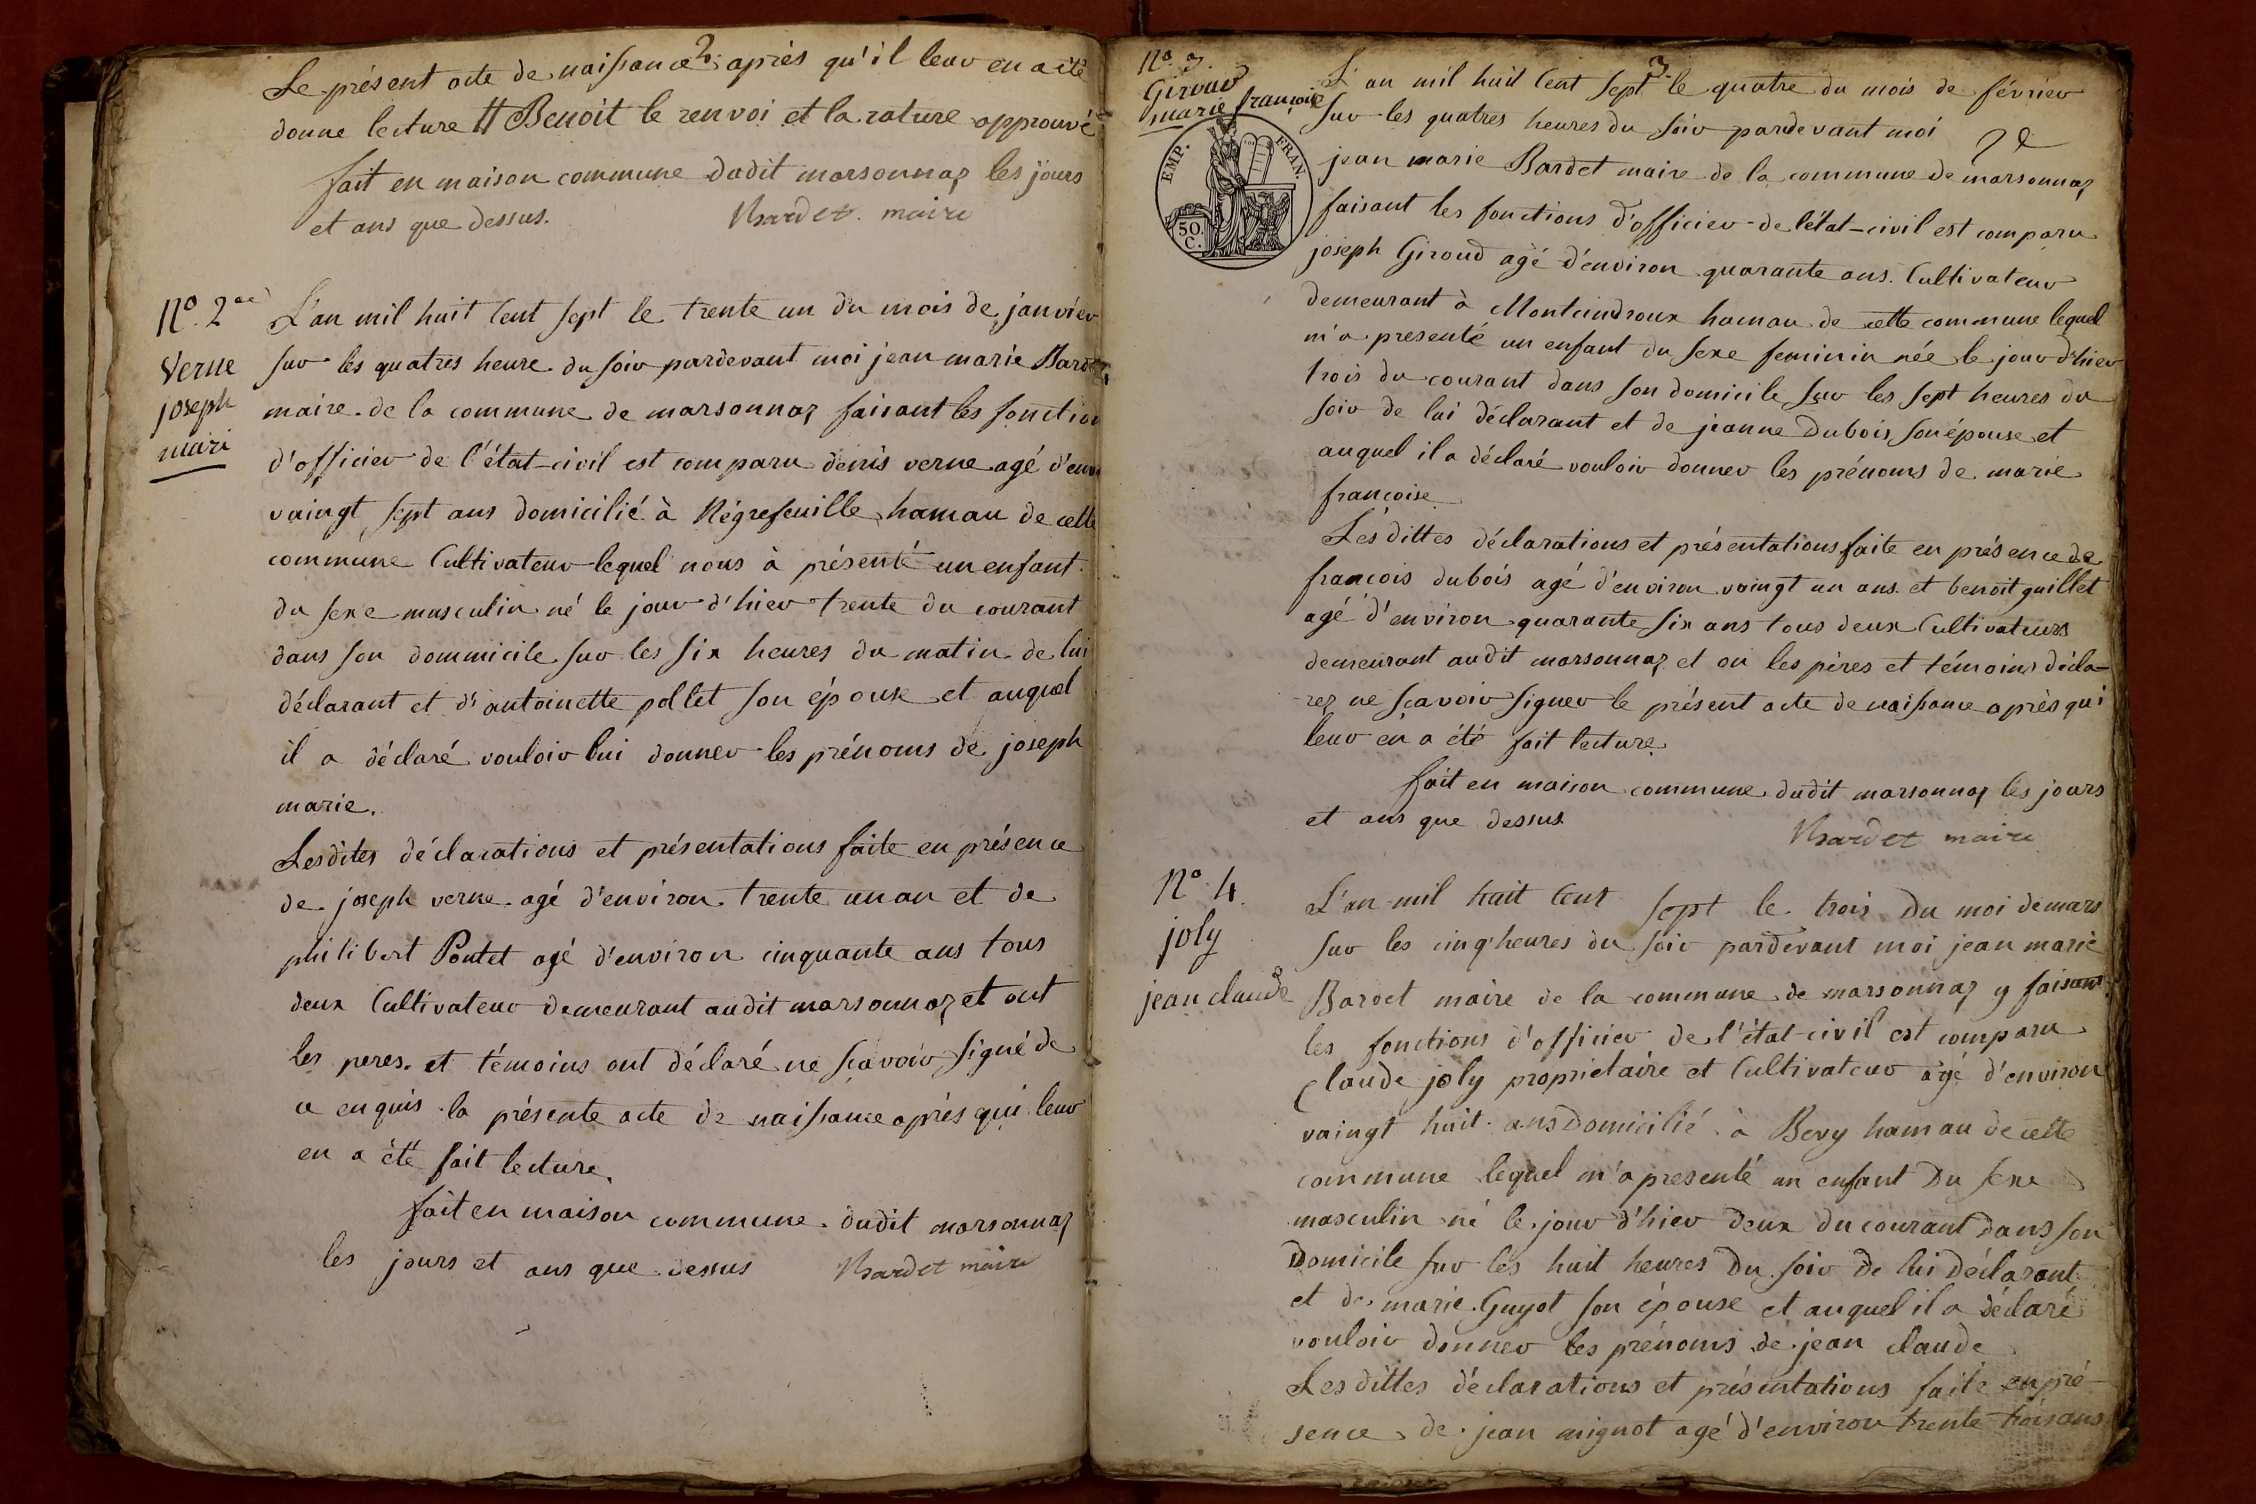 2
Le présent acte de naissance après qu'il leur en a été
donne lecture # Benoit le renvoi et la rature approuvé
fait en maison commune dudit marsonnaz les jours
et ans que dessus. Bardet maire
N° 2
Verne
joseph
mari
L'an mil huit Cent sept le trente un du mois de janvier
sur les quatres heure du soir pardevant moi jean marie Bardet
maire de la commune de marsonnaz faisant les fonction
d'officier de l'état-civil est comparu denis verne agé d'env
vaingt sept ans domicilié à Négrefeuille hamau de cette
commune Cultivateur lequel nous à présenté un enfant
du sexe masculin né le jour d'hier trente du courant
dans son dommicile sur les six heures du matin de lui
déclarant et d'antoinette pollet son épouse et auquel
il a déclaré vouloir lui donner les prénoms de joseph
marie.
Lesdites déclarations et présentations faite en présence
de joseph verne agé d'environ trente un an et de
philibert Pontet agé d'environ cinquante ans tous
deux Cultivateur demeurant audit marsonnaz et ont
les peres et témoins ont déclaré ne sçavoir signé de
ce enquis la présente acte de naissance après qui leur
en a été fait lecture
fait en maison commune dudit marsonnaz
les jours et ans que dessus Bardet maire
3
N° 3.
Giroud
marie françoise
EMP. FRAN.
50.
C.
L'an mil huit Cent sept le quatre du mois de février
sur les quatres heures du soir pardevant moi
jean marie Bardet maire de la commune de marsonnaz
faisant les fonctions d'officier de l'état-civil est comparu
joseph Giroud agé d'environ quarante ans. Cultivateur
demeurant à Montcindroux hamau de cette commune lequel
m'a presenté un enfant du sexe feminin née le jour d'hier
trois du courant dans son domicile sur les sept heures du
soir de lui déclarant et de jeanne Dubois son épouse et
auquel il a déclaré vouloir donner les prénoms de marie
françoise
Lesdittes déclarations et présentations faite en présence de
francois dubois agé d'environ vaingt un ans et benoit guillet
agé d'environ quarante six ans tous deux Cultivateurs
demeurant audit marsonnaz et on les pères et témoins décla-
rez ne sçavoir signer le présent acte de naissance après qui
leur en a été fait lecture
fait en maison commune dudit marsonnaz les jours
et ans que dessus
Bardet maire
N° 4.
joly
jean claude
L'an mil huit Cent sept le trois du moi de mars
sur les cinq heures du soir pardevant moi jean marie
Bardet maire de la commune de marsonnaz y faisant
les fonctions d'officier de l'état-civil est comparu
Claude joly proprietaire et Cultivateur agé d'environ
vaingt huit ans Domicilié à Bevy hamau de cette
commune lequel m'a presenté un enfant Du sexe
masculin né le jour d'hier deux du courant dans son
Domicile sur les huit heures Du soir De lui Déclarant
et de marie Guyot son épouse et auquel il a déclaré
vouloir donner les prénoms de jean claude
Lesdittes déclarations et présentations faite en pré-
sence de jean mignot agé d'environ trente trois ans